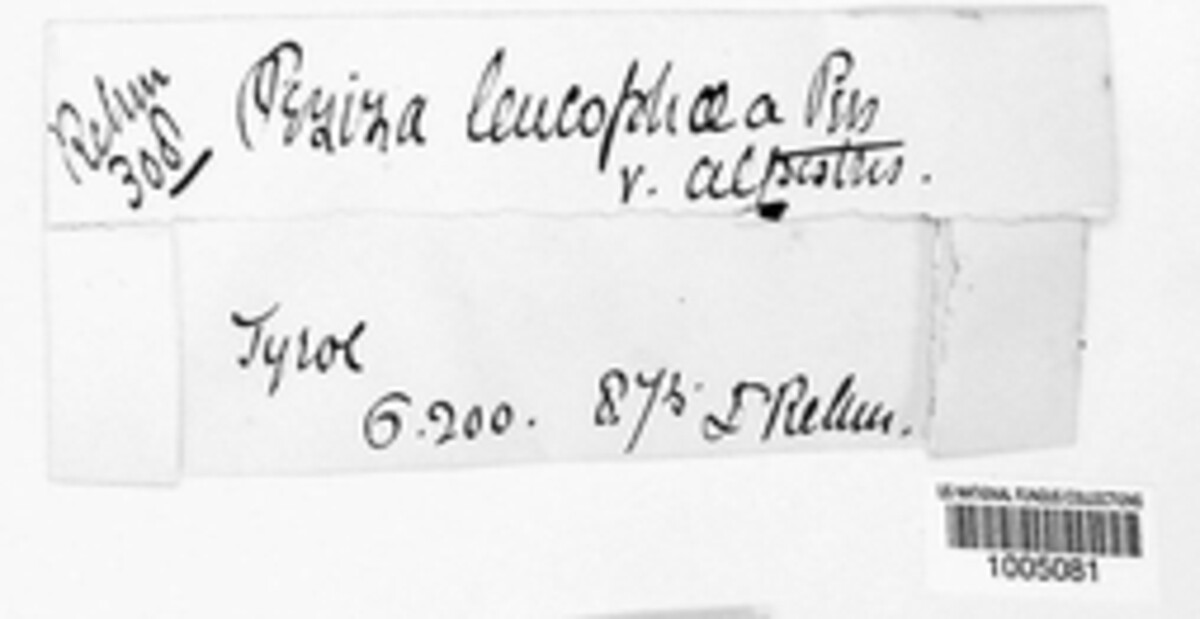 Rehm
308
Peziza leucophaea Pers
v. alpestris.
Tyrol
6.200. 875 D Rehm.
US NATIONAL FUNGUS COLLECTIONS
1005081